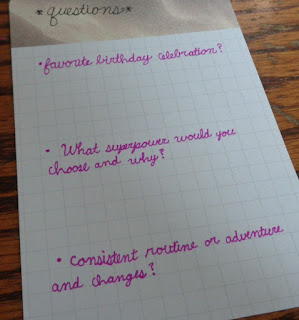 *questions*
•favorite birthday celebration?
• What superpower would you
choose and why?
• Consistent routine or adventure
and changes?